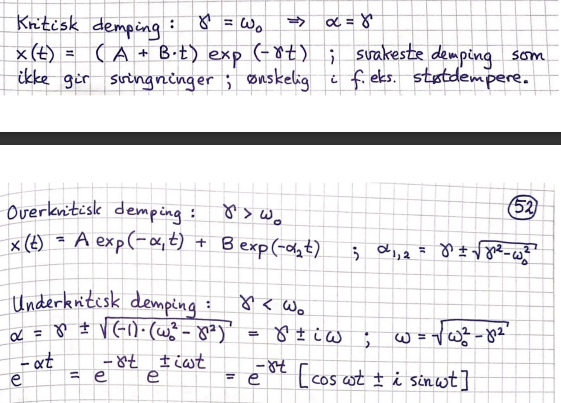 Kritisk demping : γ = ω₀ ⇒ α = γ
x(t) = ( A + B·t) exp (-γt) ; svakeste demping som
ikke gir svingninger ; ønskelig i f.eks. støtdempere.
52
Overkritisk demping : γ > ω₀
x(t) = A exp(-α₁t) + B exp(-α₂t) ; α₁,₂ = γ ± √(γ²-ω₀²)
Underkritisk demping : γ < ω₀
α = γ ± √((-1)·(ω₀² - γ²)) = γ ± iω ; ω = √(ω₀² - γ²)
e^(-αt) = e^(-γt) e^(±iωt) = e^(-γt) [cos ωt ± i sin ωt]